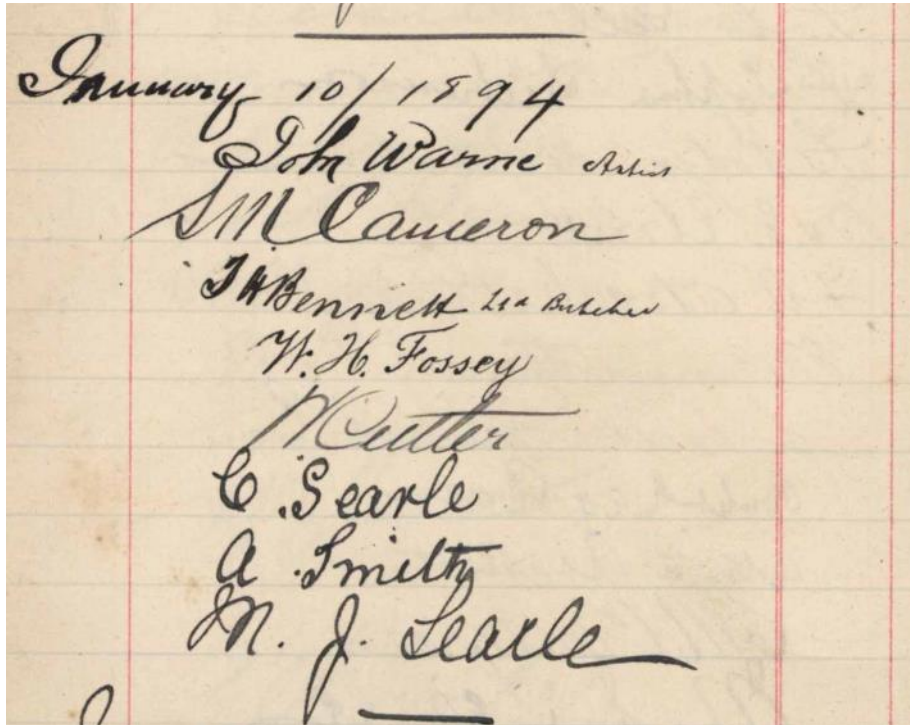 January 10/1894
John Warne Artist
S M Cameron
J H Bennett Butcher
W. H. Fossey
W Cutter
C. Searle
A. Smith
M. J. Searle